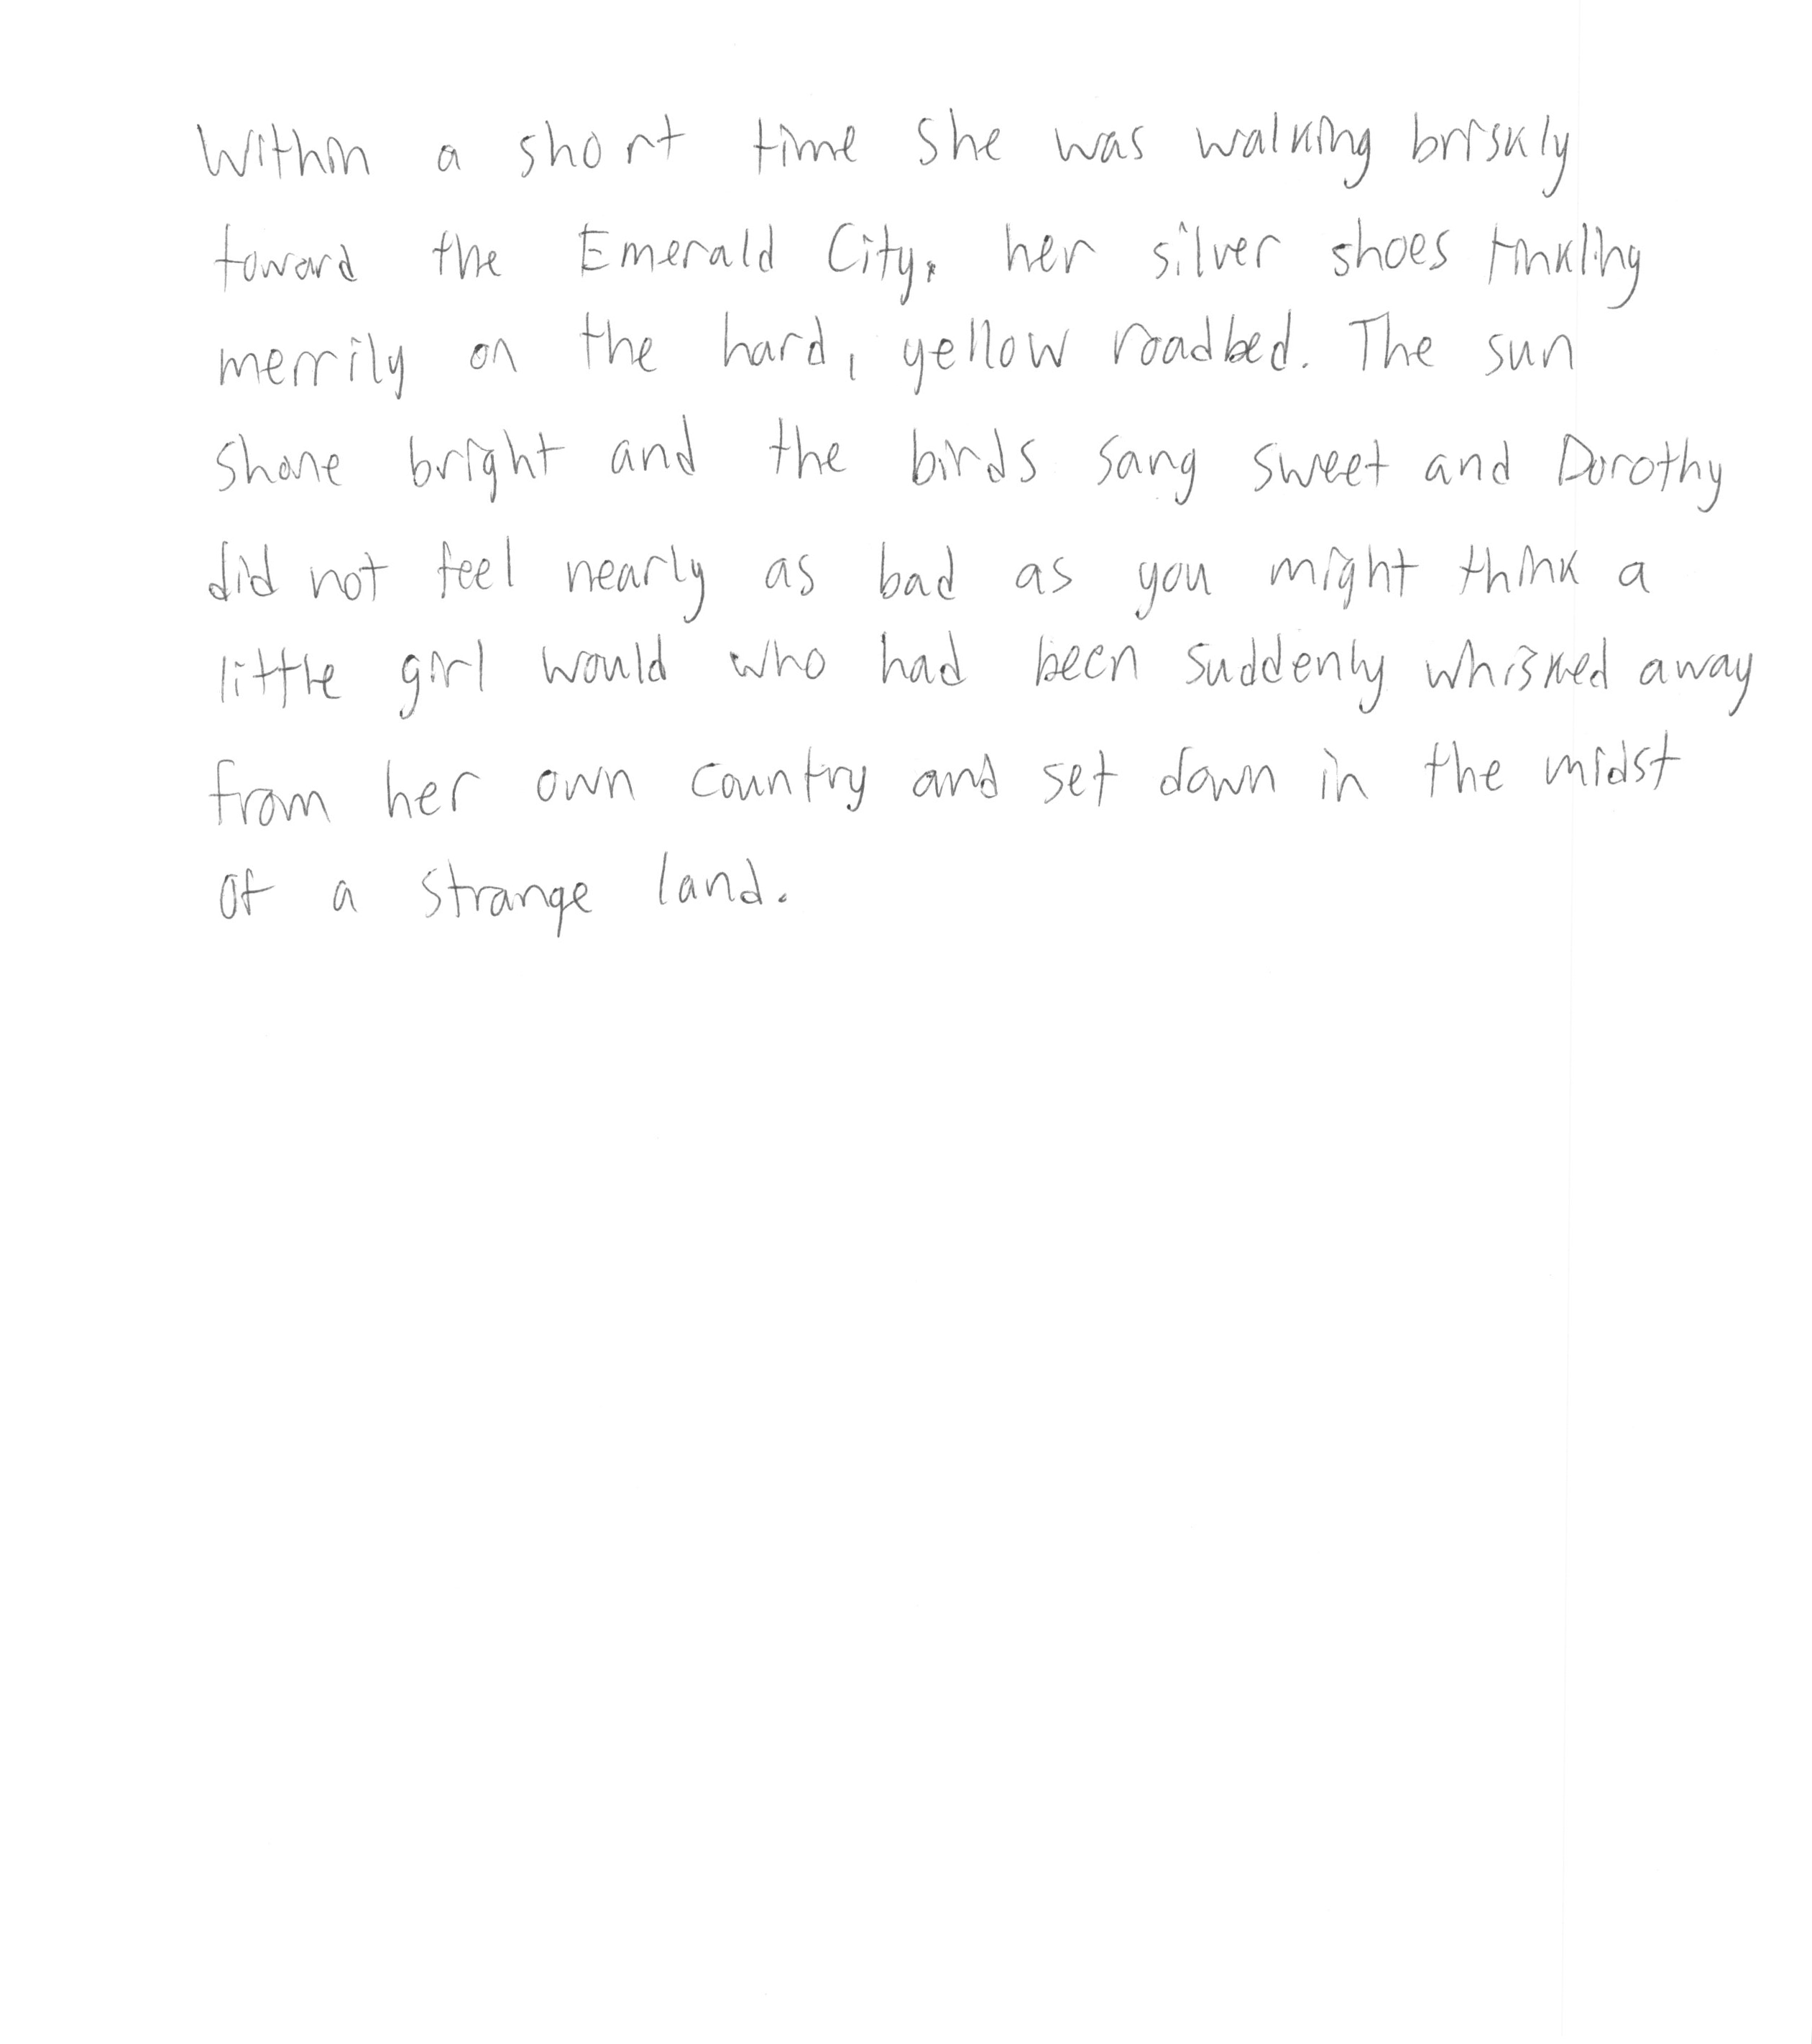 Within a short time she was walking briskly
toward the Emerald City, her silver shoes tinkling
merrily on the hard, yellow roadbed. The sun
shone bright and the birds sang sweet and Dorothy
did not feel nearly as bad as you might think a
little girl would who had been suddenly whisked away
from her own country and set down in the midst
of a strange land.